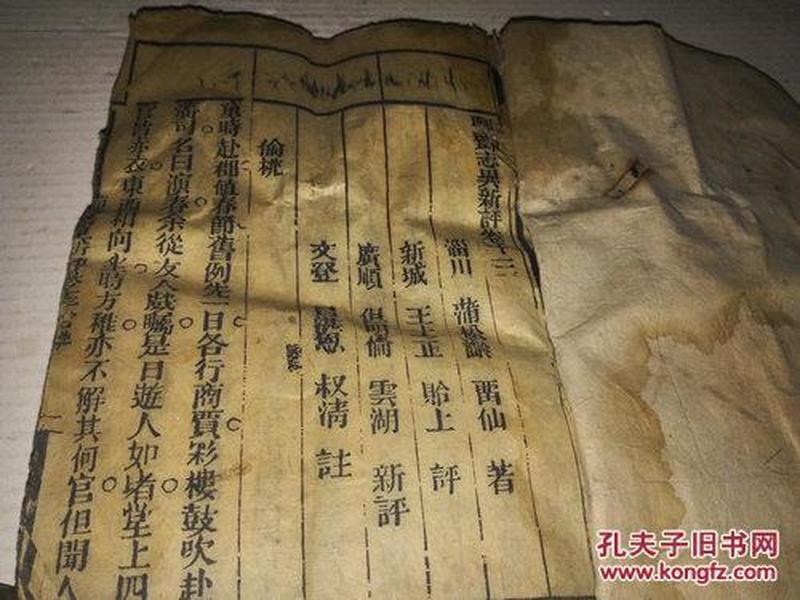 聊齋志異新評卷十三
淄川 蒲松齡 畱仙 著
新城 王士正 貽上 評
廣順 但倫 雲湖 新評
文登 呂湛恩 叔清 註
偷桃
童時赴郡値春節舊例先一日各行商賈彩樓鼓吹赴
藩司名曰演春余從友人戲矚是日遊人如堵堂上四
官皆赤衣東西相向坐時方稚亦不解其何官但聞人
孔夫子旧书网
www.kongfz.com